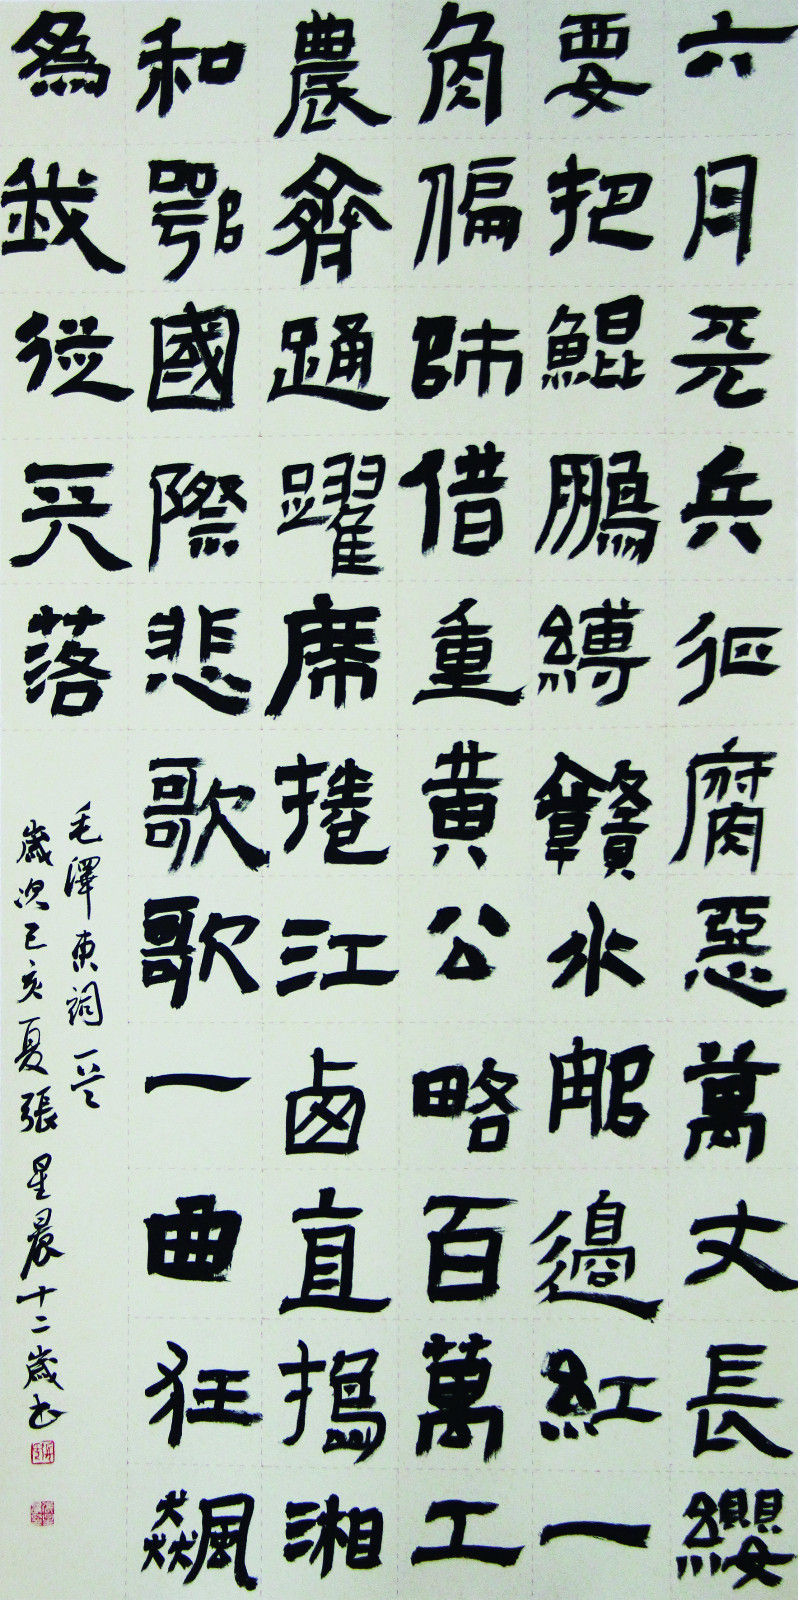 六月天兵征腐惡萬丈長纓
要把鯤鵬縛贛水那邊紅一
角偏師借重黃公略百萬工
農齊踴躍席捲江西直搗湘
和鄂國際悲歌歌一曲狂飆
為我從天落
毛澤東詞一首
歲次己亥夏張星晨十二歲書